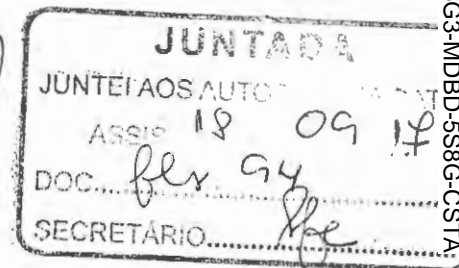 JUNTADA
JUNTEI AOS AUTO
ASSIS 18 09 17
DOC... fls 94
SECRETÁRIO
G3-MDBD-5S8G-CSTA